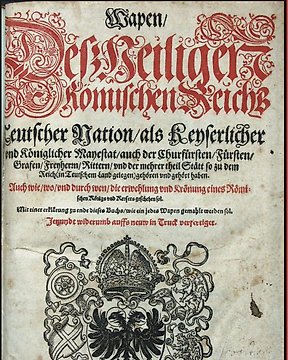 Wapen/
Des Heiligen
Römischen Reichs
Teutscher Nation / als Keyserlicher
vnd Königlicher Mayestat / auch der Churfürsten / Fürsten /
Grafen / Freyherrn / Rittern / vnd der mehrer theil Stätt so zu dem
Reich / in Teutschem Land gelegen / gehören vnd gehört haben.
Auch wie / wo / vnd durch wen / die erwehlung vnd Krönung eines Römi-
schen Königs vnd Keysers geschehen sol.
Mit einer erklärung zu ende dieses Buchs / wie ein jedes Wapen gemahlt werden sol.
Jetzundt widerumb auffs neuw in Truck verfertiget.